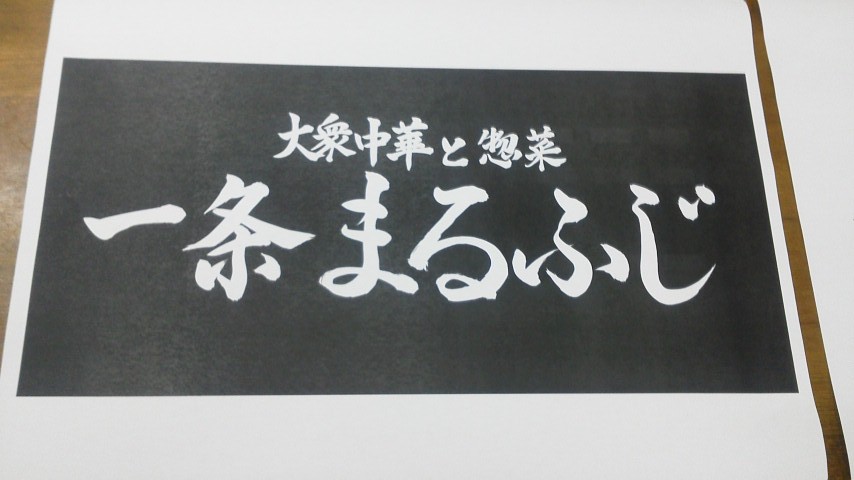 大衆中華と惣菜
一条まるふじ